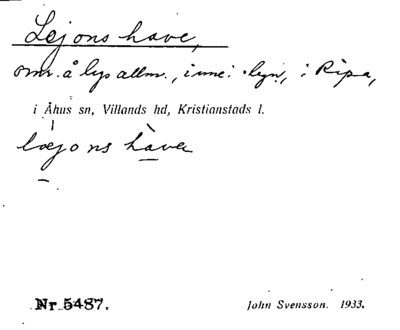 Lejons have,
omr. å lys allm., inne i byn, i Ripa,
i Åhus sn, Villands hd, Kristianstads l.
læjons have
Nr 5487. John Svensson. 1933.